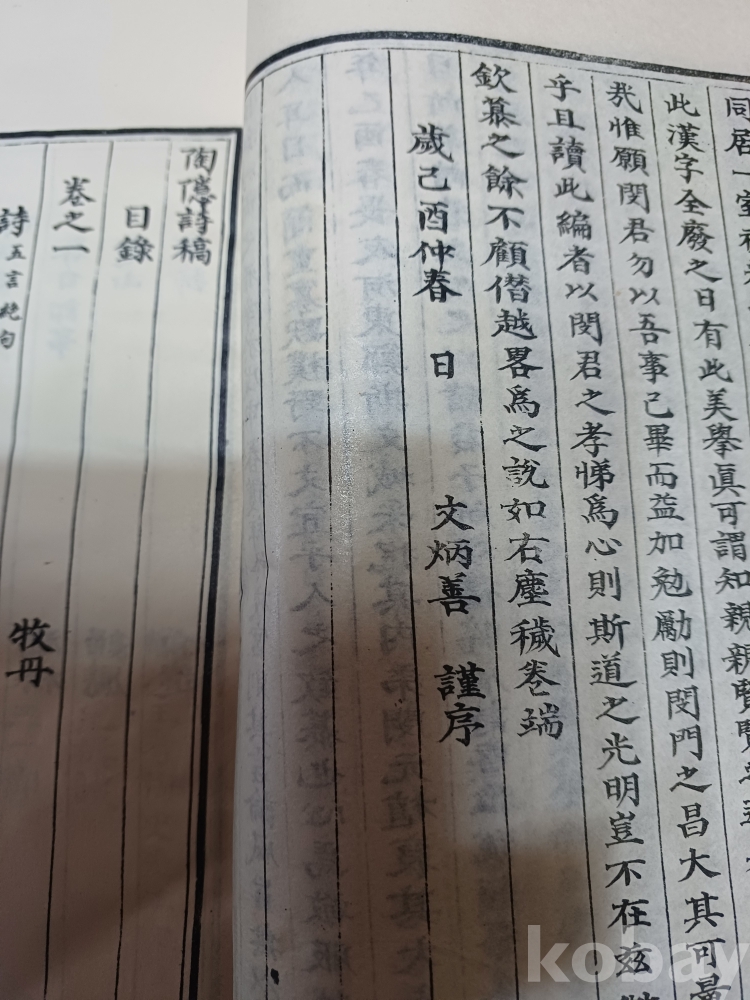 同居一室
此漢字全廢之日有此美擧眞可謂知親親賢賢
㦲惟願閔君勿以吾事已畢而益加勉勵則閔門之昌大其可量
乎且讀此編者以閔君之孝悌爲心則斯道之光明豈不在玆
欽慕之餘不顧僭越畧爲之說如右塵穢卷端
歲己酉仲春 日 文炳善 謹序
陶隱詩稿
目錄
卷之一
詩 五言絶句
牧丹
kobay